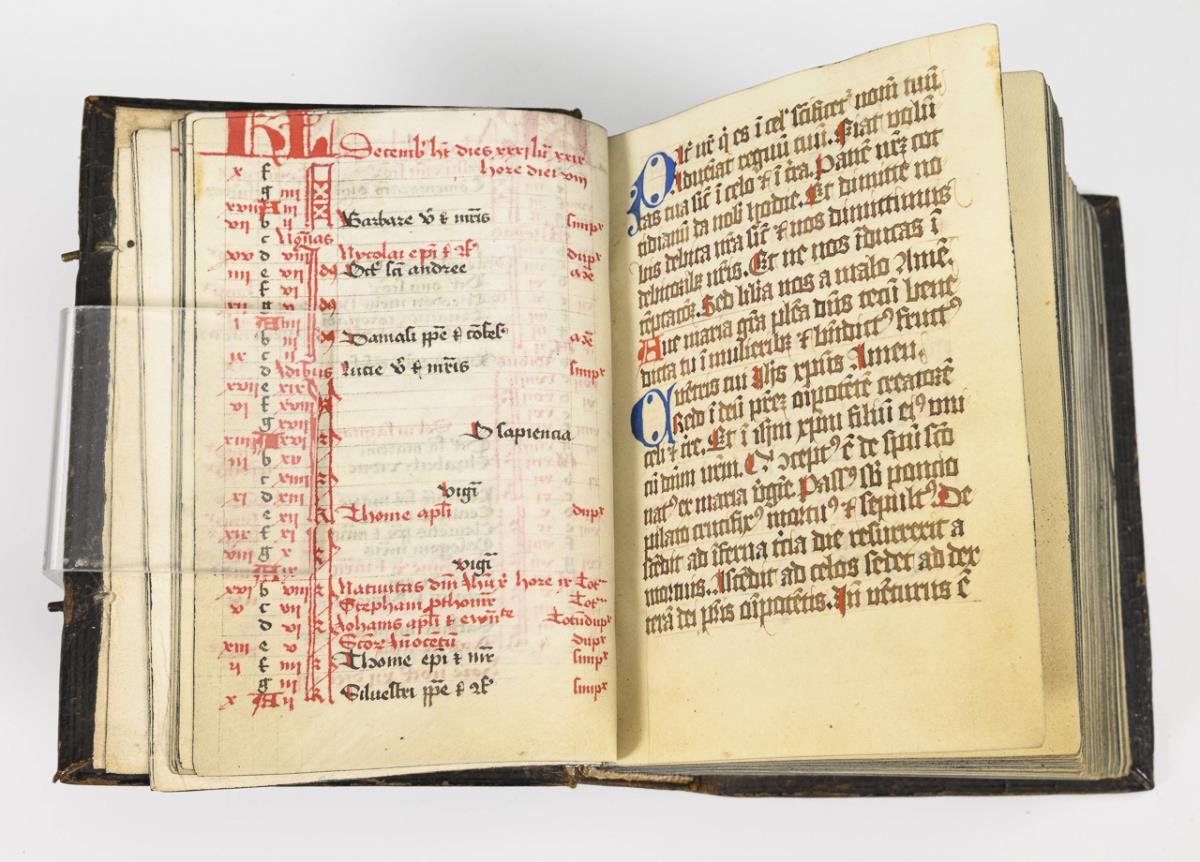 KL Decemb' ht dies xxxj lu xxix
hore diei viij
x f
g iiij
xviij A iij
vij b ij Barbare v̄ & mr̄is simpx
c Nonas
xv d viij Nycolai epi & 9f' dupx
iiij e vij Oct' sci andree
f vi
xij g v
i A iiij
b iij Damasi ppe & 9fes'
ix c ij
d Idibus lucie v̄ & mr̄is simpx
xvij e xix
vi f xviij
g
xiiij A xvi O sapiencia
iij b xv
c xiiij
xi d xiij vigī
e xij Thome apli dupx
xix f xi
viij g x
A ix vigī
xvi b viij Nativitas dm̄ Ihū x hore ix Tot'
v c vij Stephani ꝓthomr̄ Tot'
d vi Johanis apli & ewāte Totūdupx
xiij e v Scōꝝ Inocētū dupx
ij f iiij Thome epi & mr̄ simpx
g iij
x A ij Silvestri ppe & 9f' simpx
Pat' nr̄ q̄ es ī cel' scificet' nom̄ tuū
Adveīat regnū tuū. Fiat volū
tas tua sic̄ ī celo & ī tr̄a. Panē nr̄ꝫ cot
tidianū da nob' hodie. Et dimitte no
bis debita nr̄a sic̄ & nos dimittimus
debitorib' nr̄is. Et ne nos īducas ī
tēptacōꝫ. Sed lib'a nos a malo Amē.
Ave maria gr̄a plēa dn̄s tecū bene
dicta tu ī mulierib' & bn̄dict' fruct'
ventris tui Ihs xpus Amen.
Credo ī deū prēꝫ oīpotētē creatorē
celi & tr̄e. Et ī ihm xpm̄ filiū ei' uni
cū dn̄m nr̄m. Qī ↄcept' ē de spū scō
nat' ex maria v̄gīe. Pass' sb' poncio
pilato crucifix' mortu' & sepult' De
scēdit ad īferna tc̄ia die resurrexit a
mortuis. Ascēdit ad celos sedet ad dex
terā dei pr̄is oīpotentis. Inn vēturus ē